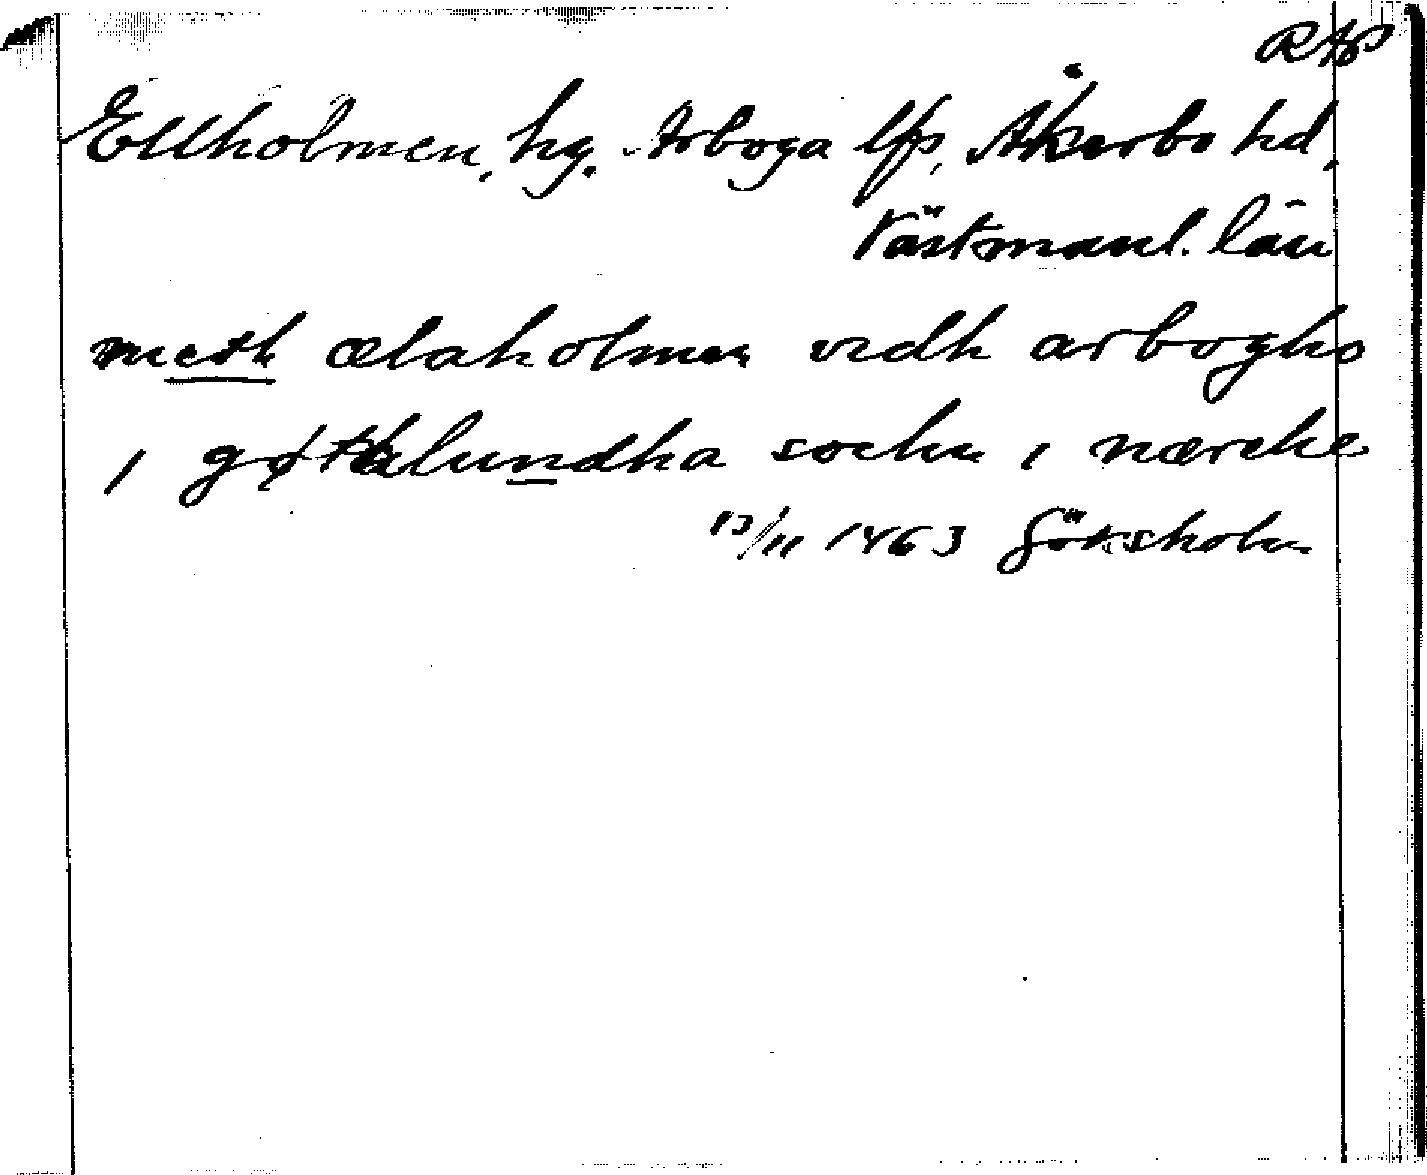 RAP
Ellholmen, hg. Arboga lfs, Åkerbo hd,
Västmanl. län
meth ælaholmen vidh arbogho
i gøthalundha sochn i nærcke
13/11 1463 Göksholm